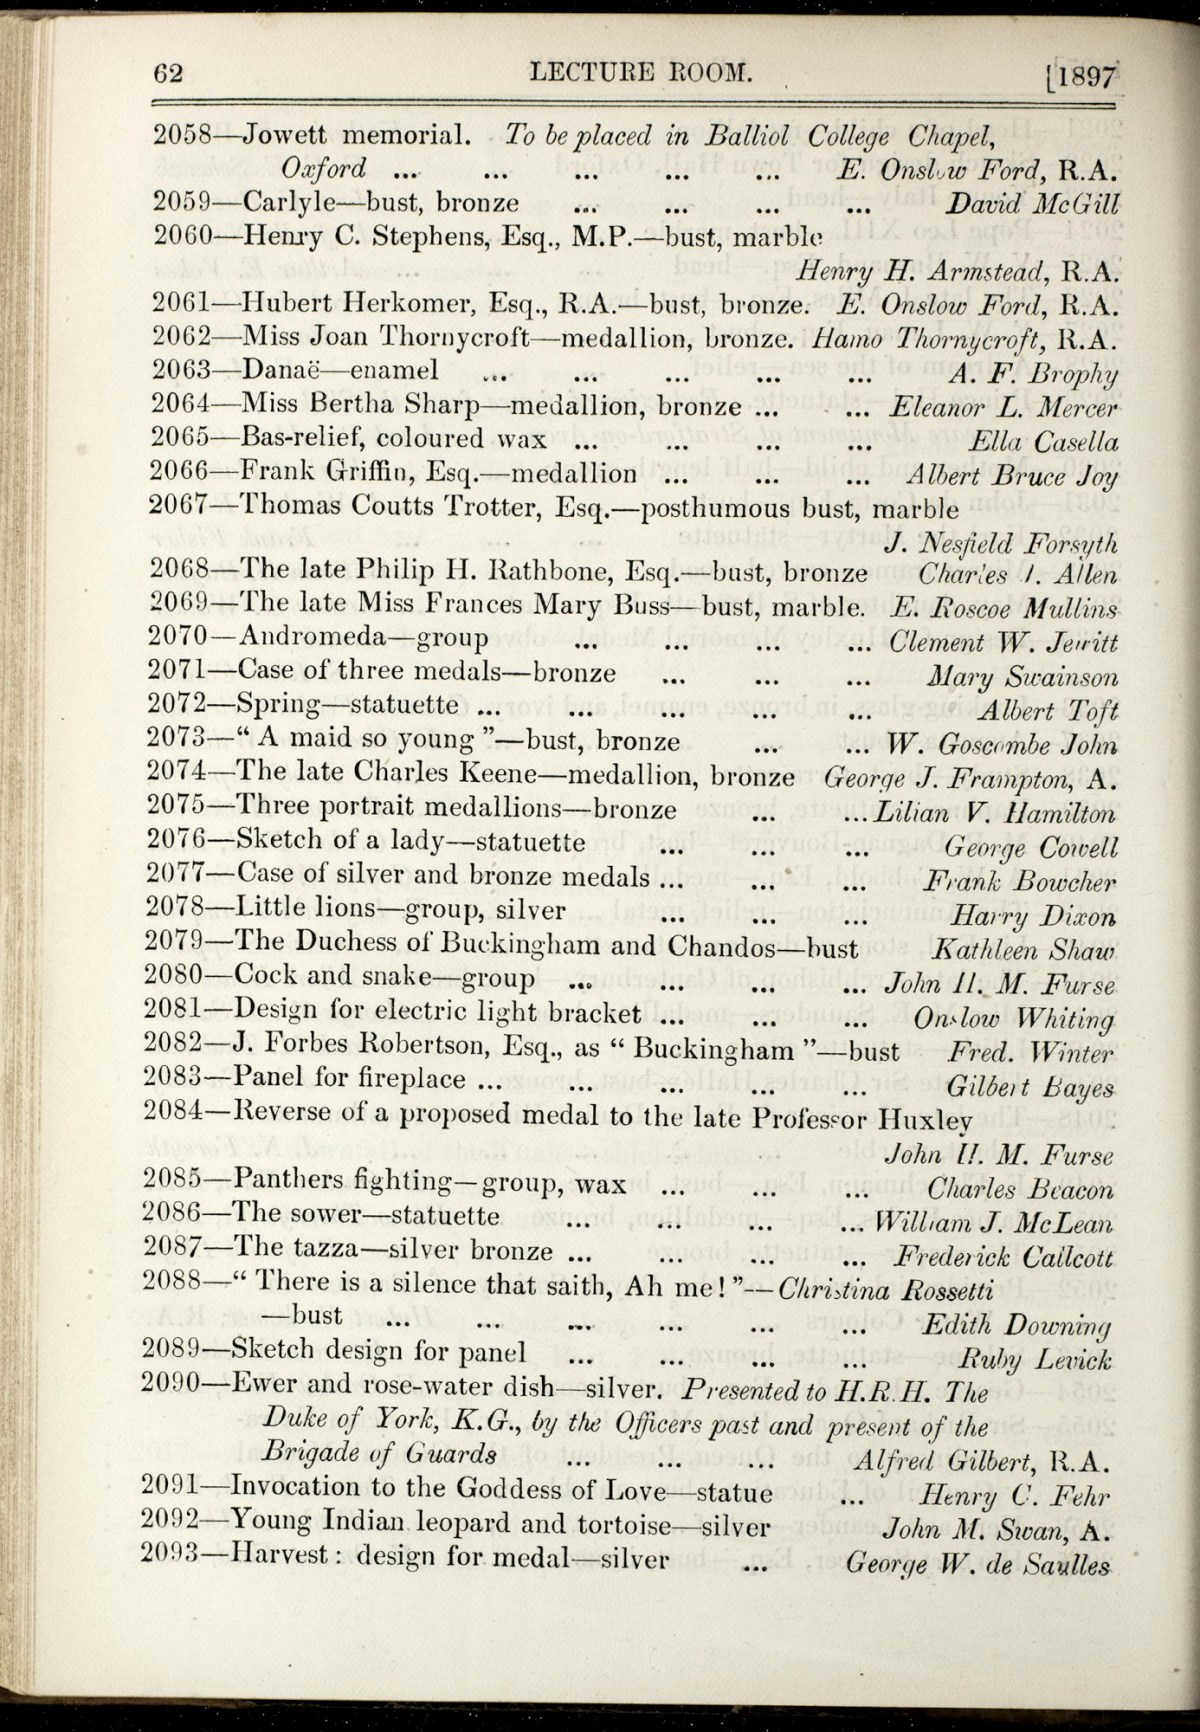 62 LECTURE ROOM. [1897
2058—Jowett memorial. To be placed in Balliol College Chapel,
Oxford ... ... ... ... ... E. Onslow Ford, R.A.
2059—Carlyle—bust, bronze ... ... ... ... David McGill
2060—Henry C. Stephens, Esq., M.P.—bust, marble
Henry H. Armstead, R.A.
2061—Hubert Herkomer, Esq., R.A.—bust, bronze. E. Onslow Ford, R.A.
2062—Miss Joan Thornycroft—medallion, bronze. Hamo Thornycroft, R.A.
2063—Danaë—enamel ... ... ... ... ... A. F. Brophy
2064—Miss Bertha Sharp—medallion, bronze ... ... Eleanor L. Mercer
2065—Bas-relief, coloured wax ... ... ... ... Ella Casella
2066—Frank Griffin, Esq.—medallion ... ... ... Albert Bruce Joy
2067—Thomas Coutts Trotter, Esq.—posthumous bust, marble
J. Nesfield Forsyth
2068—The late Philip H. Rathbone, Esq.—bust, bronze Charles J. Allen
2069—The late Miss Frances Mary Buss—bust, marble. E. Roscoe Mullins
2070—Andromeda—group ... ... ... ... Clement W. Jewitt
2071—Case of three medals—bronze ... ... ... Mary Swainson
2072—Spring—statuette ... ... ... ... ... Albert Toft
2073—“ A maid so young ”—bust, bronze ... ... W. Goscombe John
2074—The late Charles Keene—medallion, bronze George J. Frampton, A.
2075—Three portrait medallions—bronze ... ... Lilian V. Hamilton
2076—Sketch of a lady—statuette ... ... ... George Cowell
2077—Case of silver and bronze medals ... ... ... Frank Bowcher
2078—Little lions—group, silver ... ... ... Harry Dixon
2079—The Duchess of Buckingham and Chandos—bust Kathleen Shaw
2080—Cock and snake—group ... ... ... ... John H. M. Furse
2081—Design for electric light bracket ... ... ... Onslow Whiting
2082—J. Forbes Robertson, Esq., as “ Buckingham ”—bust Fred. Winter
2083—Panel for fireplace ... ... ... ... ... Gilbert Bayes
2084—Reverse of a proposed medal to the late Professor Huxley
John H. M. Furse
2085—Panthers fighting—group, wax ... ... ... Charles Beacon
2086—The sower—statuette ... ... ... ... William J. McLean
2087—The tazza—silver bronze ... ... ... ... Frederick Callcott
2088—“ There is a silence that saith, Ah me! ”—Christina Rossetti
—bust ... ... ... ... ... ... Edith Downing
2089—Sketch design for panel ... ... ... ... Ruby Levick
2090—Ewer and rose-water dish—silver. Presented to H.R.H. The
Duke of York, K.G., by the Officers past and present of the
Brigade of Guards ... ... ... Alfred Gilbert, R.A.
2091—Invocation to the Goddess of Love—statue ... Henry C. Fehr
2092—Young Indian leopard and tortoise—silver John M. Swan, A.
2093—Harvest: design for medal—silver ... George W. de Saulles